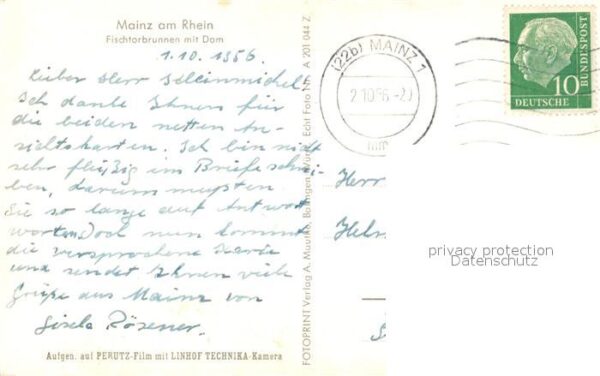 Mainz am Rhein
Fischtorbrunnen mit Dom
1.10.1956.
Lieber Herr
Ich danke Ihnen für
die beiden netten An-
sichtskarten. Ich bin nicht
sehr fleißig im Briefeschrei-
ben, darum mußten
Sie so lange auf Antwort
warten. Doch nun kommt
die versprochene Karte
und sendet Ihnen viele
Grüße aus Mainz von
Gisela Rösener.
Aufgen. auf PERUTZ-Film mit LINHOF TECHNIKA-Kamera
FOTOPRINT Verlag A. Echt Foto Nr. A 201 044 Z
(22b) MAINZ 1
2.10.56
DEUTSCHE
BUNDESPOST
10
Herr
privacy protection
Datenschutz